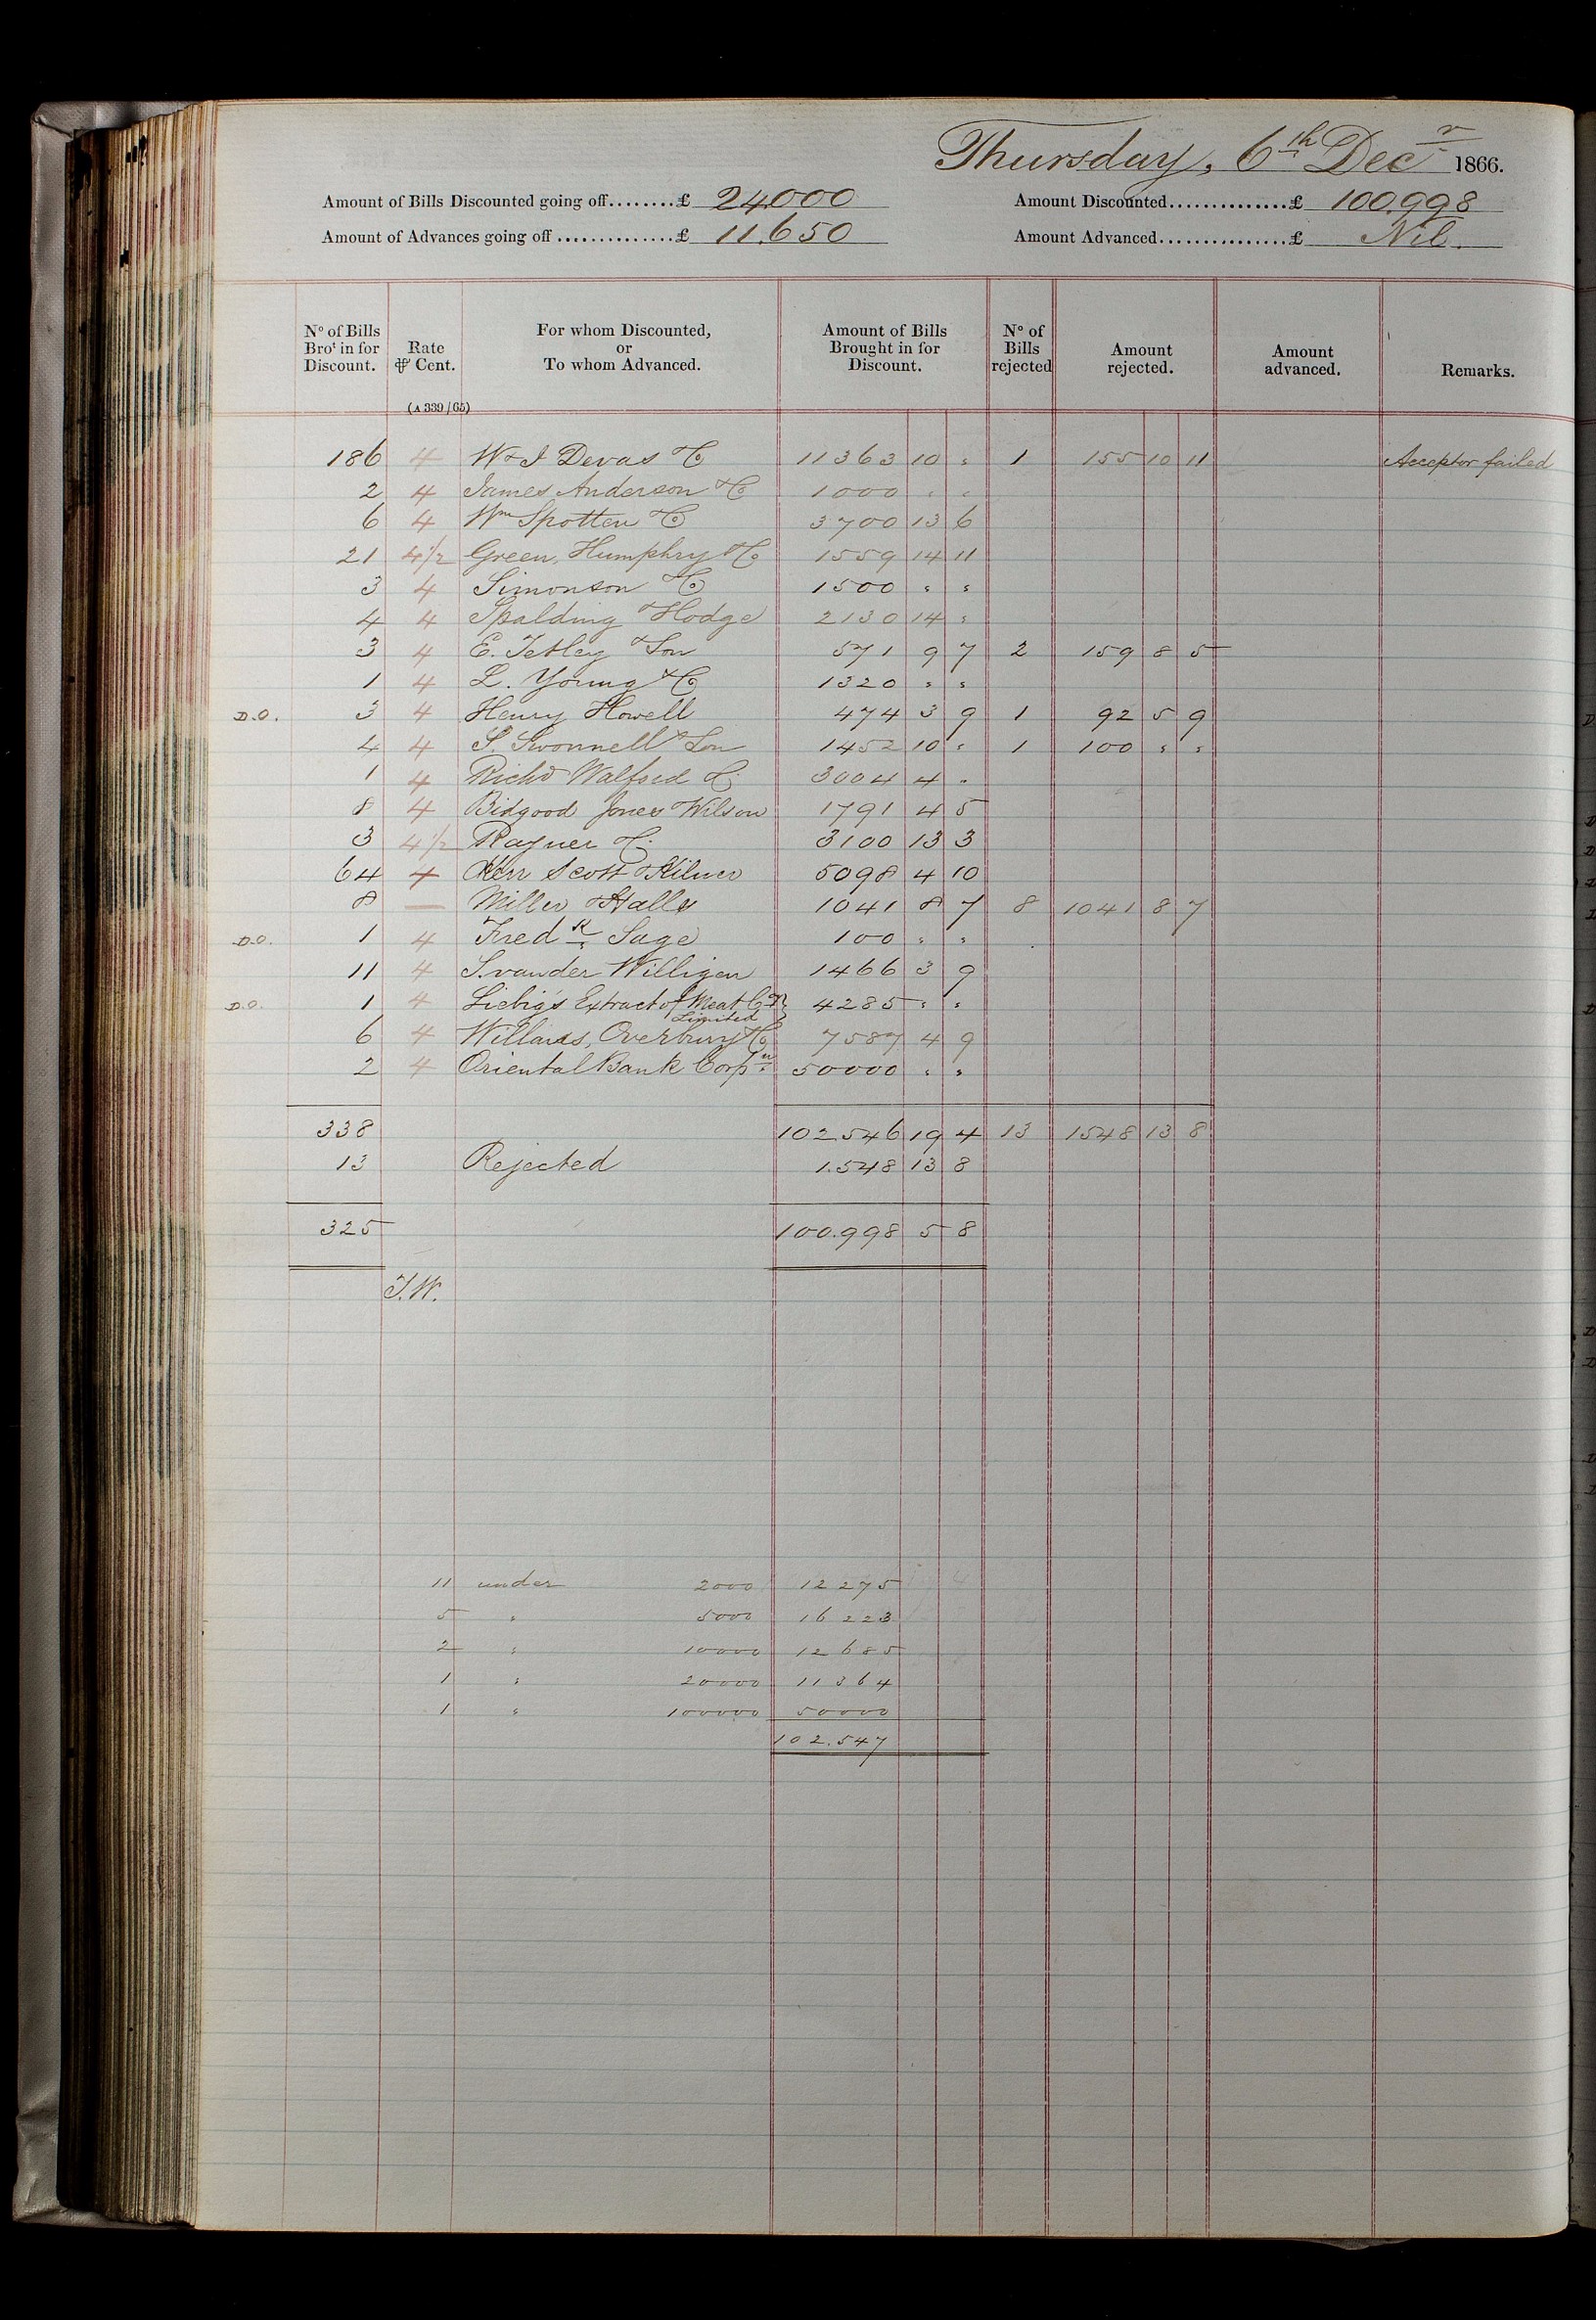 Thursday, 6th Decr 1866.
Amount of Bills Discounted going off........£ 24000 Amount Discounted..............£ 100,998
Amount of Advances going off..............£ 11.650 Amount Advanced...............£ Nil.
No of Bills Brot in for Discount. Rate ⅌ Cent. For whom Discounted, or To whom Advanced. Amount of Bills Brought in for Discount. No of Bills rejected Amount rejected. Amount advanced. Remarks.
(A 339/65)
186 4 W & J Devas & Co 11363 10 " 1 155 10 11 Acceptor failed
2 4 James Anderson & Co 1000 " "
6 4 Wm Spotten & Co 3700 13 6
21 4½ Green, Humphry & Co 1559 14 11
3 4 Simonson & Co 1500 " "
4 4 Spalding & Hodge 2130 14 "
3 4 E. Tetley & Son 571 9 7 2 159 8 5
1 4 L. Young & Co 1320 " "
D.O. 3 4 Henry Howell 474 3 9 1 92 5 9
4 4 S. Swonnell & Son 1452 10 " 1 100 " "
1 4 Richd Walford & Co 3004 4 "
8 4 Bidgood Jones & Wilson 1791 4 5
3 4½ Rayner & Co 3100 13 3
64 4 Kerr Scott & Kilner 5098 4 10
8 — Miller & Halls 1041 8 7 8 1041 8 7
D.O. 1 4 Fredk Sage 100 " "
11 4 S. vander Willigen 1466 3 9
D.O. 1 4 Liebig's Extract of Meat Coy Limited } 4285 " "
6 4 Willans, Overbury & Co 7587 4 9
2 4 Oriental Bank Corpn 50000 " "
338 102.546 19 4 13 1548 13 8
13 Rejected 1.548 13 8
325 100.998 5 8
T.W.
11 under 2000 12275
5 " 5000 16223
2 " 10000 12685
1 " 20000 11364
1 " 100000 50000
102.547